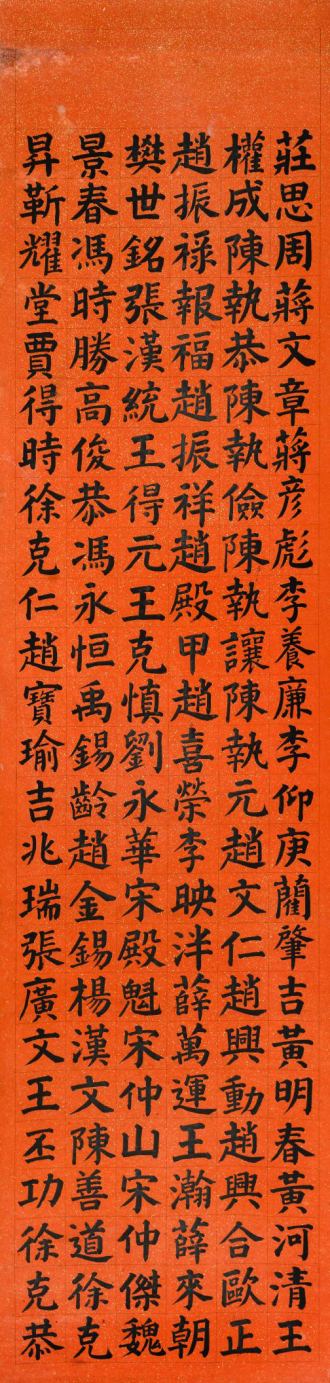 莊思周蔣文章蔣彥彪李養廉李仰庚藺肇吉黃明春黃河清王
權成陳執恭陳執儉陳執讓陳執元趙文仁趙興動趙興合歐正
趙振祿報福趙振祥趙殿甲趙喜榮李映泮薛萬運王瀚薛來朝
樊世銘張漢統王得元王克慎劉永華宋殿魁宋仲山宋仲傑魏
景春馮時勝高俊恭馮永恒禹錫齡趙金錫楊漢文陳善道徐克
昇靳耀堂賈得時徐克仁趙寶瑜吉兆瑞張廣文王丕功徐克恭